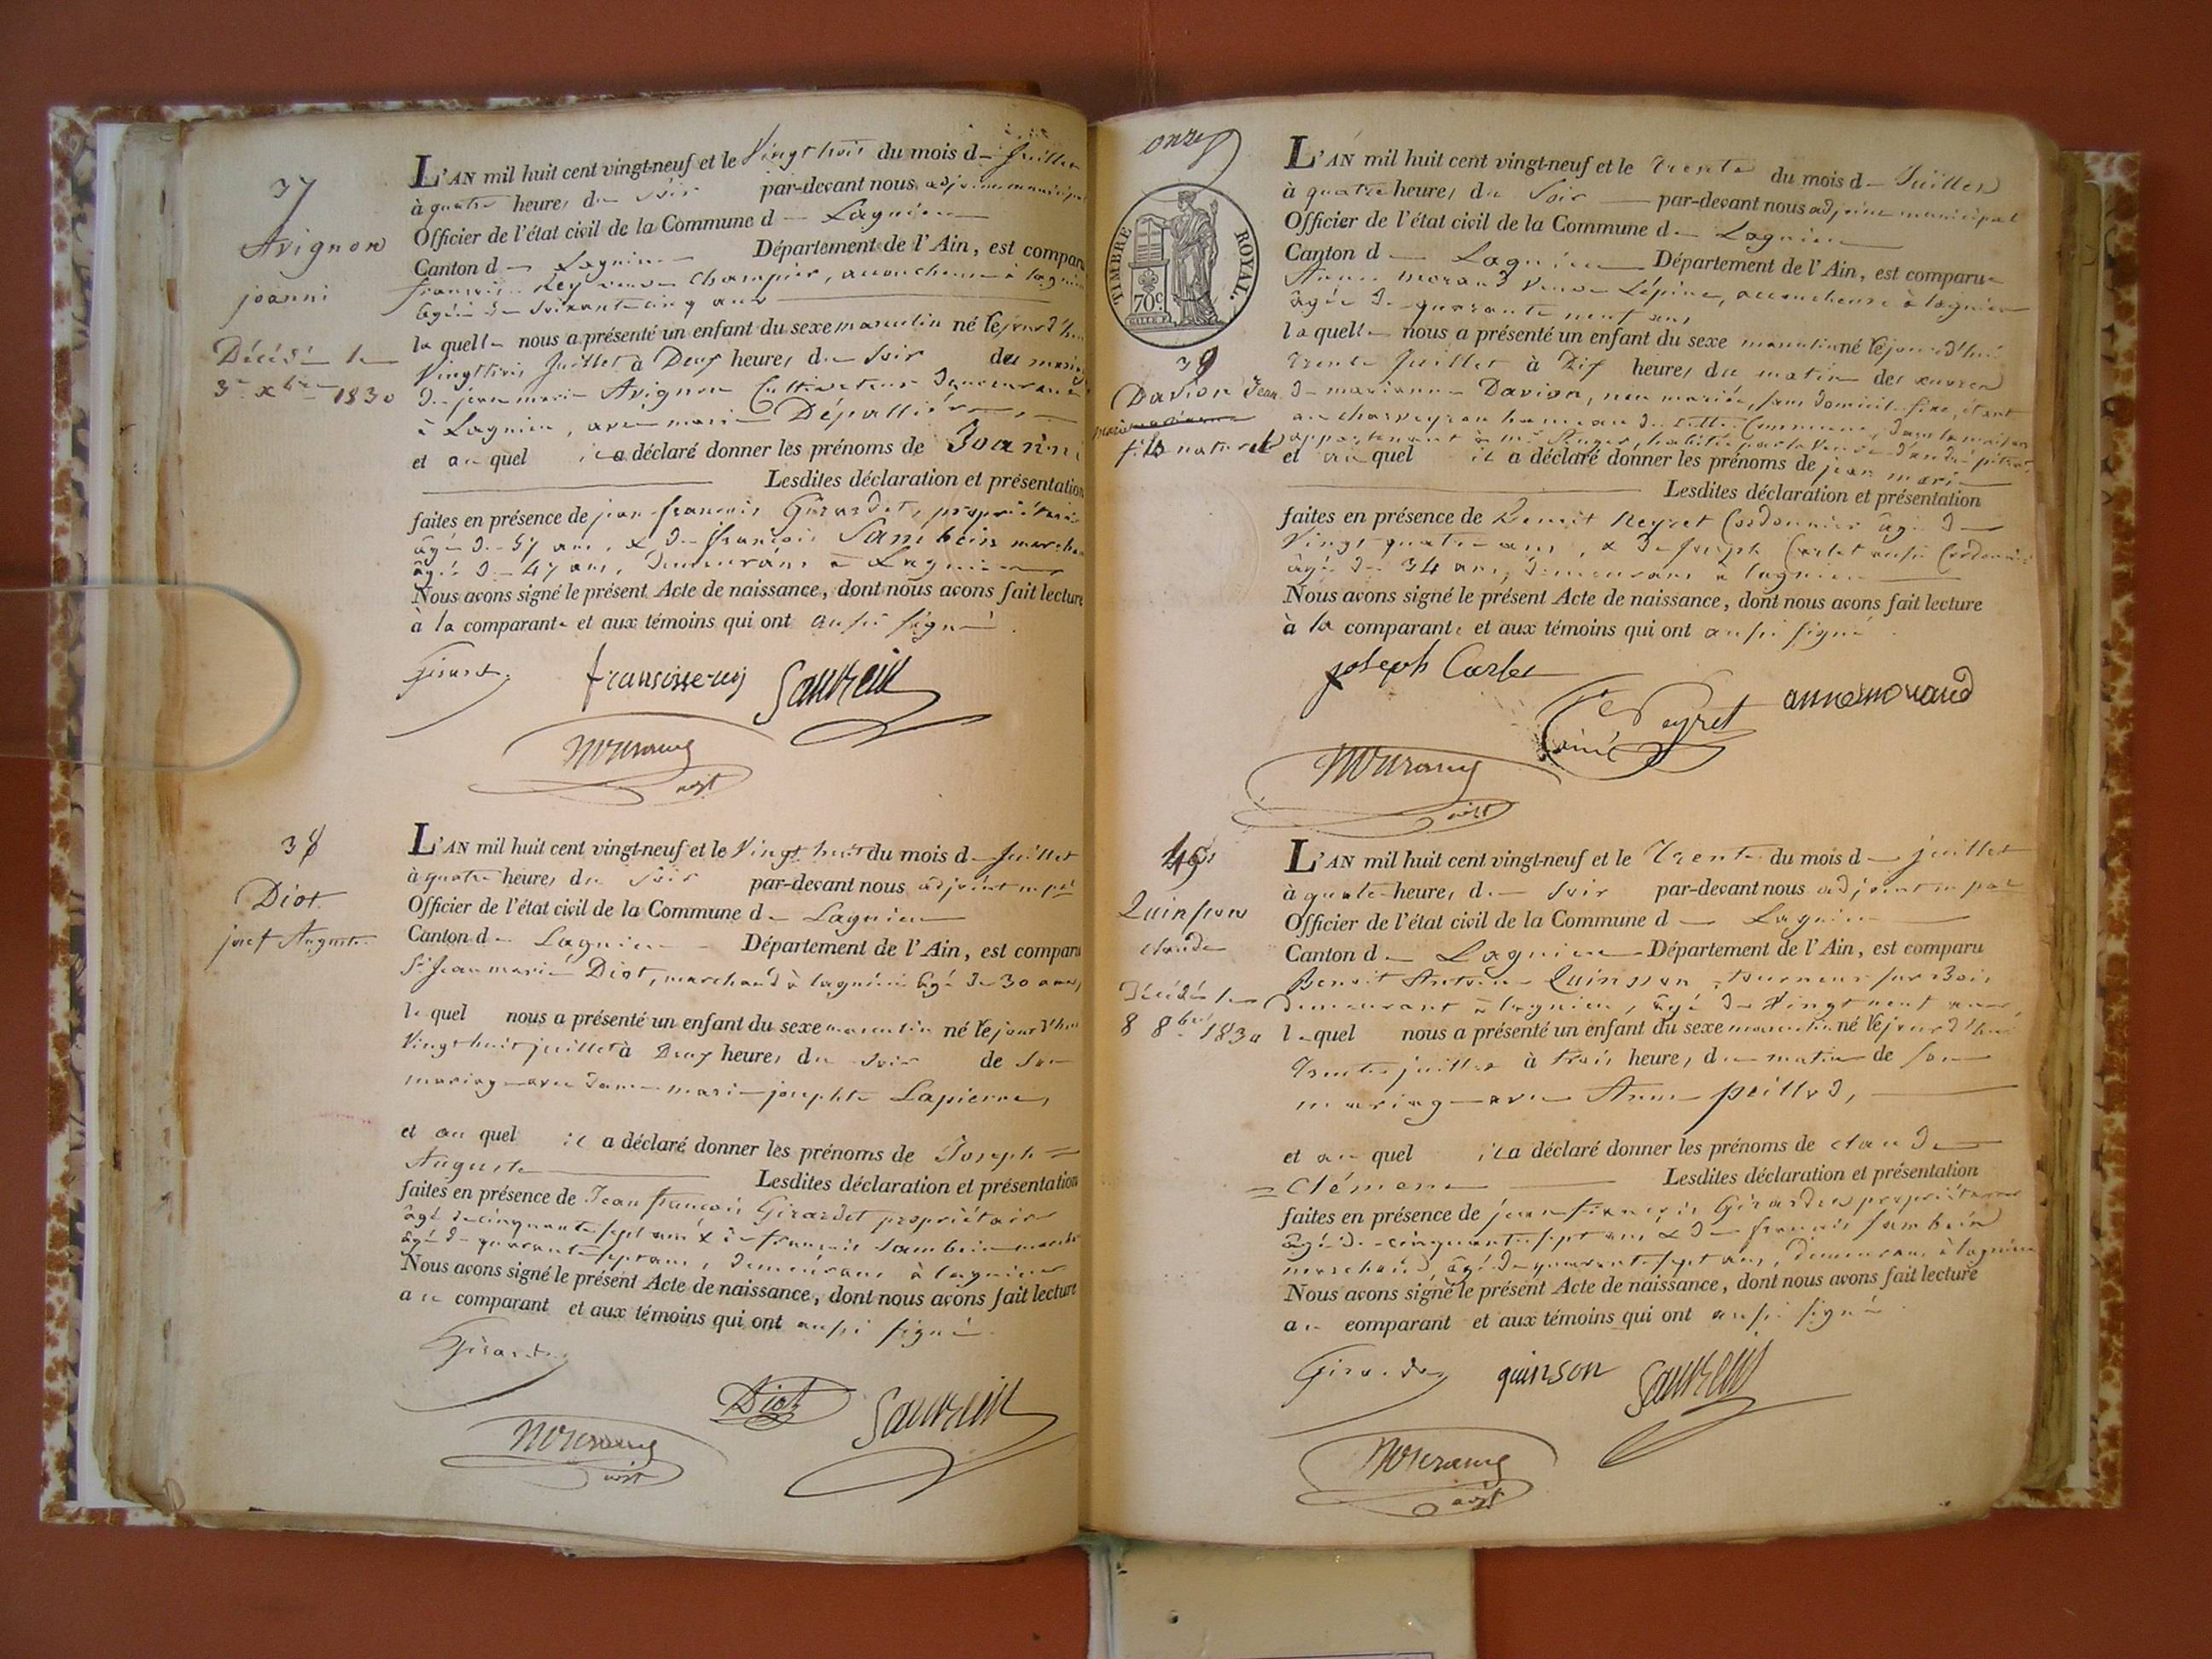 37
Avignon
joanni
Décédé le
3 xbre 1830
L'AN mil huit cent vingt-neuf et le Vingt trois du mois de Juillet
à quatre heures du soir par-devant nous adjoint municipal
Officier de l'état civil de la Commune de Lagnieu
Canton de Lagnieu Département de l'Ain, est comparu
françoise Rey veuve Champier, accoucheuse à lagnieu
âgée de soixante cinq ans
laquelle nous a présenté un enfant du sexe masculin né le jourd'hui
Vingt trois Juillet à Deux heures du soir du mariage
de jean marie Avignon Cultivateur demeurant
à Lagnieu, avec marie Dépallière
et auquel il a déclaré donner les prénoms de Joanni
Lesdites déclaration et présentation
faites en présence de jean françois Girardet, propriétaire
âgé de 57 ans, & de françois Sambein marchand
âgé de 47 ans, demeurans à Lagnieu
Nous avons signé le présent Acte de naissance, dont nous avons fait lecture
à la comparante et aux témoins qui ont aussi signé.
Girardet fransoisserey Sambein
Morand
adjt
38
Diot
josef Auguste
L'AN mil huit cent vingt-neuf et le Vingt huit du mois de Juillet
à quatre heures du soir par-devant nous adjoint mpal
Officier de l'état civil de la Commune de Lagnieu
Canton de Lagnieu Département de l'Ain, est comparu
Sr Jean marie Diot, marchand à lagnieu âgé de 30 ans,
lequel nous a présenté un enfant du sexe masculin né le jourd'hui
Vingt huit juillet à Deux heures du soir de son
mariage avec dame marie josephte Lapierre,
et auquel il a déclaré donner les prénoms de Joseph =
Auguste Lesdites déclaration et présentation
faites en présence de Jean françois Girardet propriétaire
âgé de cinquante sept ans & de françois Sambein marchd
âgé de quarante sept ans, demeurans à lagnieu
Nous avons signé le présent Acte de naissance, dont nous avons fait lecture
au comparant et aux témoins qui ont aussi signé.
Girardet
Diot Sambein
Morand
adjt
onze
TIMBRE ROYAL.
70c.
39
Davion Jean
marie
fils naturel
L'AN mil huit cent vingt-neuf et le trente du mois de Juillet
à quatre heures du Soir par-devant nous adjoint municipal
Officier de l'état civil de la Commune de Lagnieu
Canton de Lagnieu Département de l'Ain, est comparue
Anne morand Veuve Lépine, accoucheuse à lagnieu
âgée de quarante neuf ans
laquelle nous a présenté un enfant du sexe masculin né le jourd'hui
trente Juillet à Dix heures du matin des œuvres
de marianne Davion, non mariée, sans domicile fixe, étant
au charveyron hameau de cette Commune, dans la maison
appartenant à mr habitée par la Veuve
et auquel il a déclaré donner les prénoms de jean marie
Lesdites déclaration et présentation
faites en présence de Benoit Reyret Cordonnier âgé de
Vingt quatre ans, & de Joseph Carlet aussi Cordonnier
âgé de 34 ans, demeurans à lagnieu
Nous avons signé le présent Acte de naissance, dont nous avons fait lecture
à la comparante et aux témoins qui ont aussi signé.
joseph Carlet
Reyret annemorand
ainé
Morand
adjt
40
Quinson
claude
Décédé le
8 8bre 1830
L'AN mil huit cent vingt-neuf et le Trente du mois de juillet
à quatre heures du soir par-devant nous adjoint mpal
Officier de l'état civil de la Commune de Lagnieu
Canton de Lagnieu Département de l'Ain, est comparu
Benoit Antoine Quinsson, tourneur sur Bois
demeurant à lagnieu, âgé de Vingt neuf ans,
lequel nous a présenté un enfant du sexe masculin né le jourd'hui
Trente juillet à trois heures du matin de son
mariage avec Anne peillod,
et auquel il a déclaré donner les prénoms de claude
= Clément Lesdites déclaration et présentation
faites en présence de jean françois Girardet propriétaire
âgé de cinquante sept ans & de françois Sambein
marchand, âgé de quarante sept ans, demeurans à lagnieu
Nous avons signé le présent Acte de naissance, dont nous avons fait lecture
au comparant et aux témoins qui ont aussi signé.
Girardet quinson Sambein
Morand
adjt